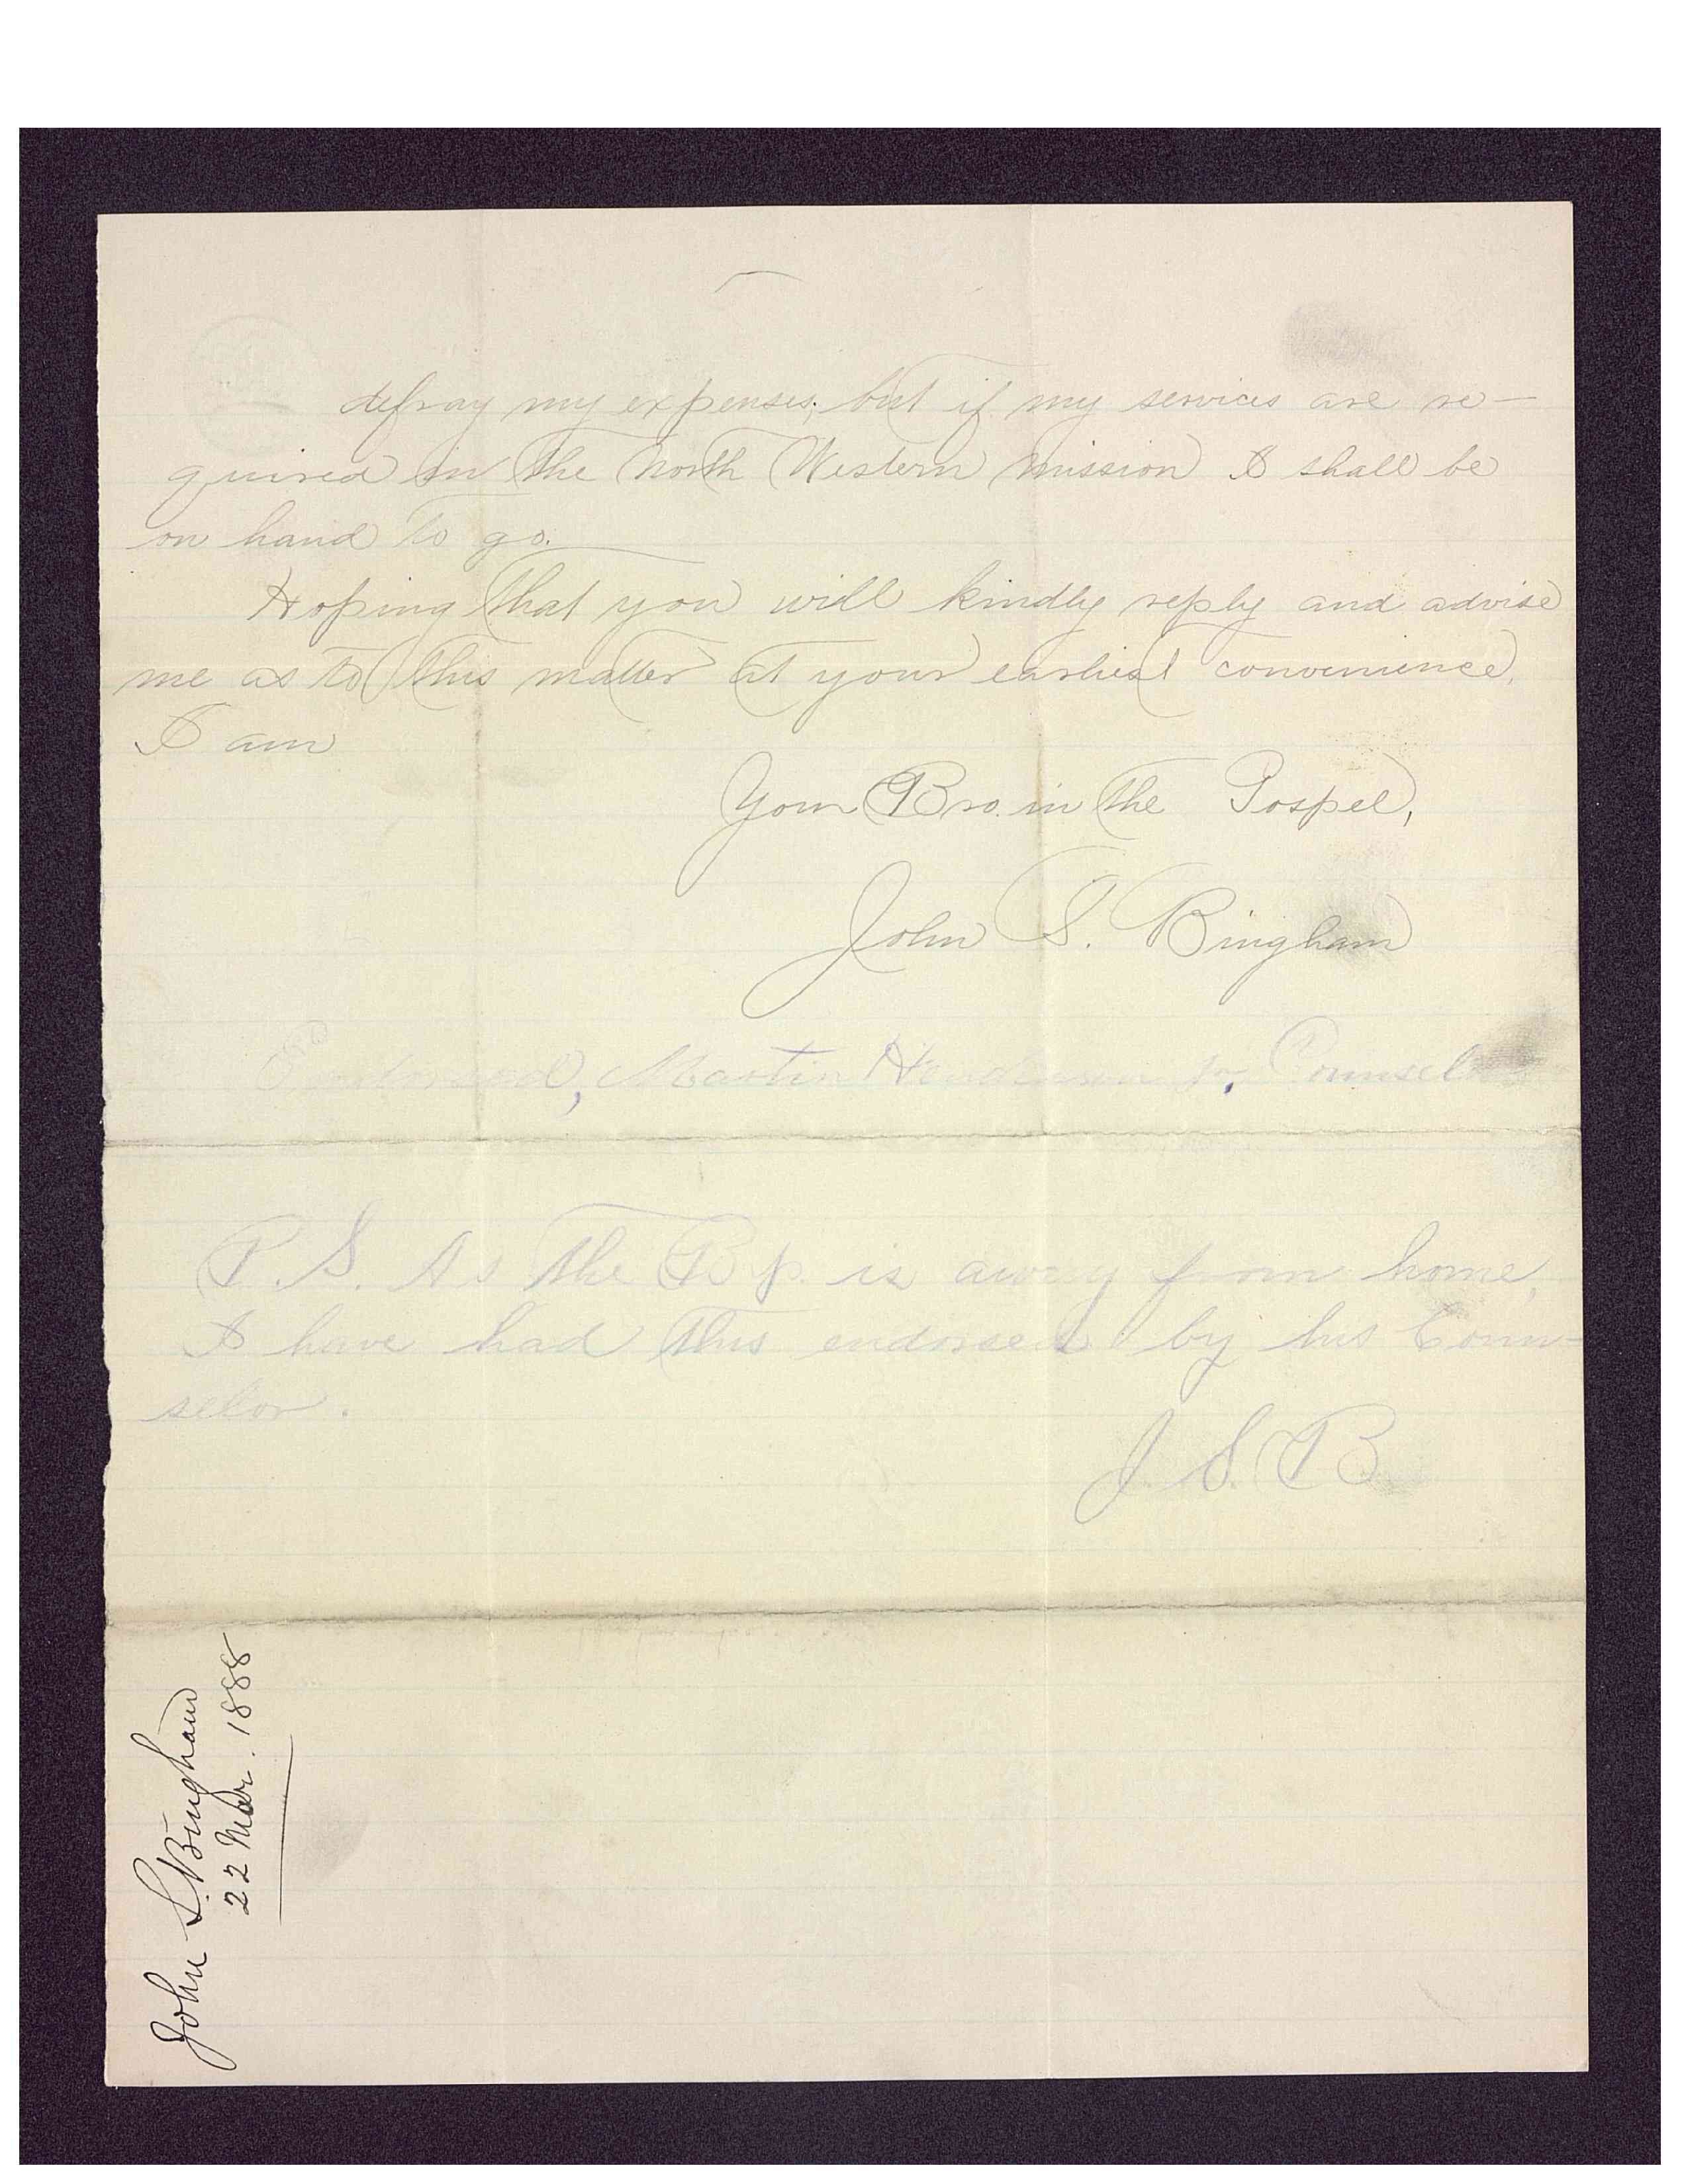 defray my expenses; but if my services are re-
quired in the North Western Mission I shall be
on hand to go.
Hoping that you will kindly reply and advise
me as to this matter at your earliest convenience,
I am
Your Bro. in the Gospel,
John S. Bingham
Endorsed, Martin Henderson jr. Counselor
P.S. As the Bp. is away from home,
I have had this endorsed by his Coun-
selor.
J. S. B
John S. Bingham
22 Mar. 1888